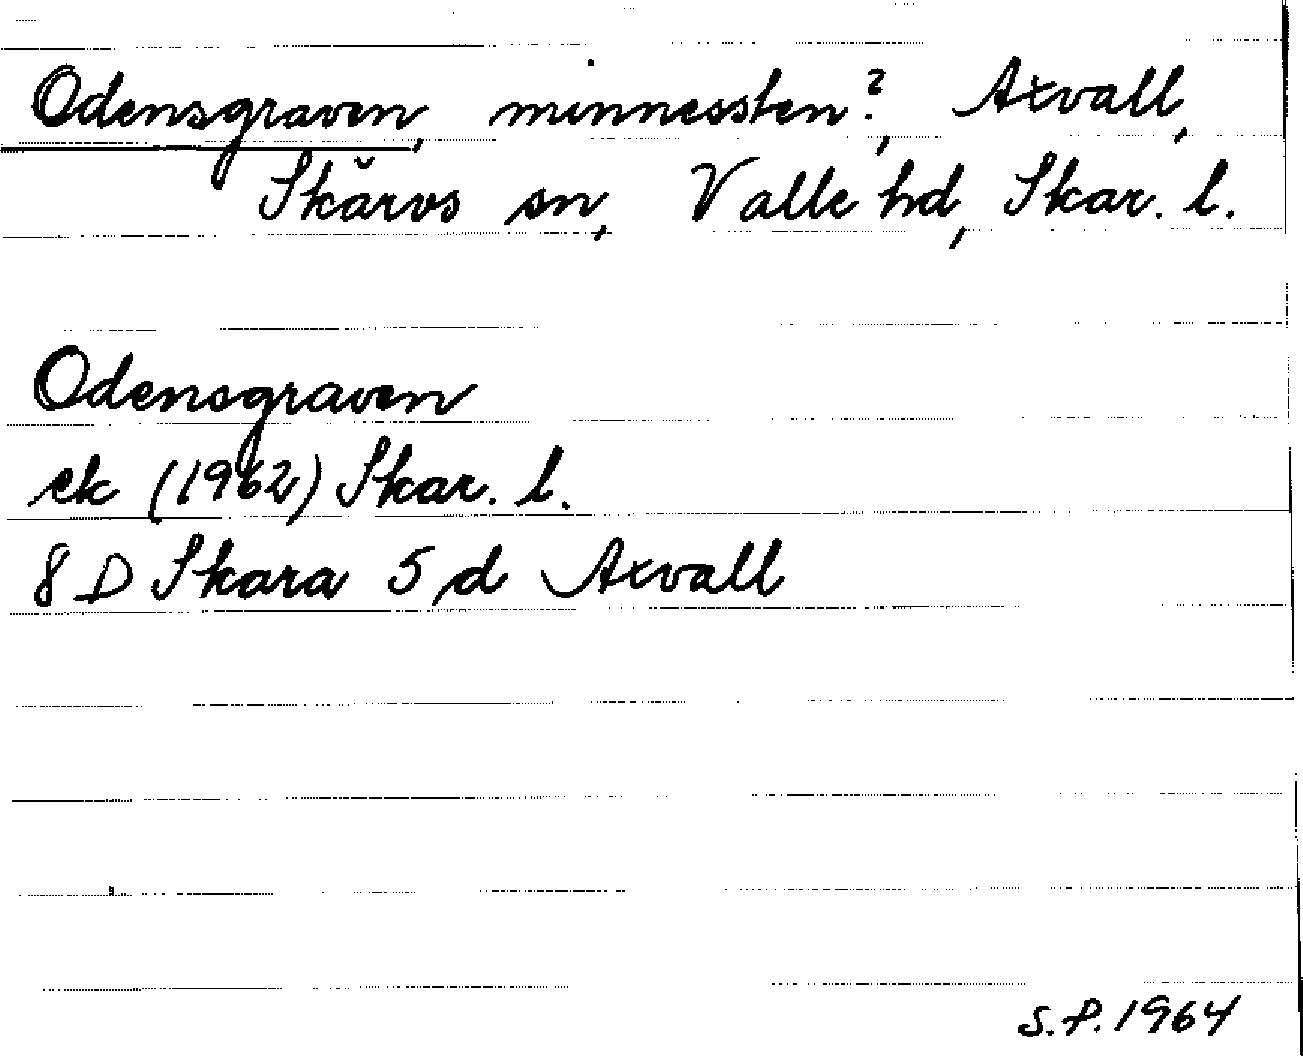 Odensgraven, minnessten?, Axvall,
Skärvs sn, Valle hd, Skar. l.
Odensgraven
ek (1962) Skar. l.
8 D Skara 5 d Axvall
S.P. 1964